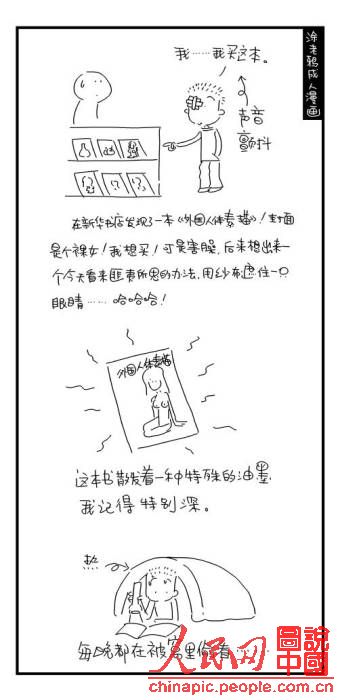 涂老鸦成人漫画
我……我买这本。
声音
颤抖
在新华书店发现了一本《外国人体素描》！封面
是个裸女！我想买！可是害臊，后来想出来一
个今天看来匪夷所思的办法，用纱布遮住一只
眼睛……哈哈哈！
外国人体素描
这本书散发着一种特殊的油墨，
我记得特别深。
每晚都在被窝里偷看……
人民网
圖說中國
chinapic.people.com.cn